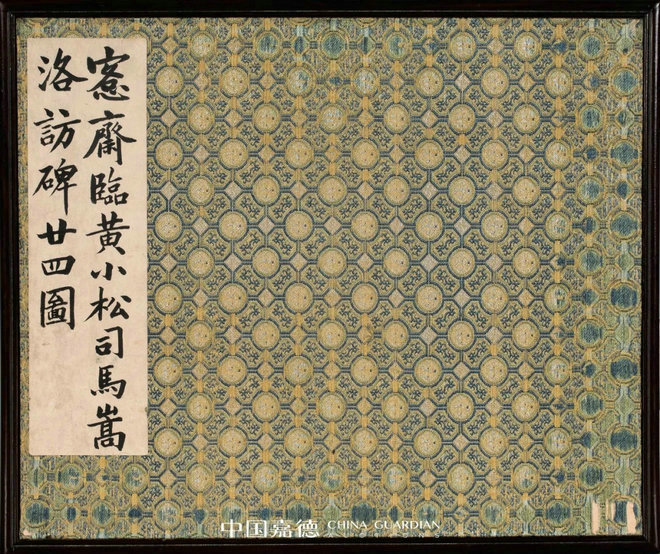 愙齋臨黃小松司馬嵩
洛訪碑廿四圖
中国嘉德 CHINA GUARDIAN